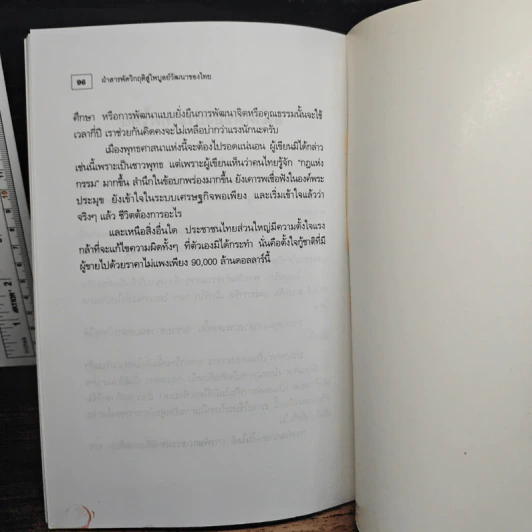 96 ผ่าสารพัดวิกฤติสู่ไพบูลย์วัฒนาของไทย
ศึกษา หรือการพัฒนาแบบยั่งยืนการพัฒนาจิตหรือคุณธรรมนั้นจะใช้
เวลากี่ปี เราช่วยกันคิดคงจะไม่เหลือบ่ากว่าแรงนักนะครับ
เมืองพุทธศาสนาแห่งนี้จะต้องไปรอดแน่นอน ผู้เขียนมิได้กล่าว
เช่นนี้เพราะเป็นชาวพุทธ แต่เพราะผู้เขียนเห็นว่าคนไทยรู้จัก "กฎแห่ง
กรรม" มากขึ้น สำนึกในข้อบกพร่องมากขึ้น ยังเคารพเชื่อฟังในองค์พระ
ประมุข ยังเข้าใจในระบบเศรษฐกิจพอเพียง และเริ่มเข้าใจแล้วว่า
จริงๆ แล้ว ชีวิตต้องการอะไร
และเหนือสิ่งอื่นใด ประชาชนไทยส่วนใหญ่มีความตั้งใจแรง
กล้าที่จะแก้ไขความผิดทั้งๆ ที่ตัวเองมิได้กระทำ นั่นคือตั้งใจกู้ชาติที่มี
ผู้ขายไปด้วยราคาไม่แพงเพียง 90,000 ล้านดอลลาร์นี้